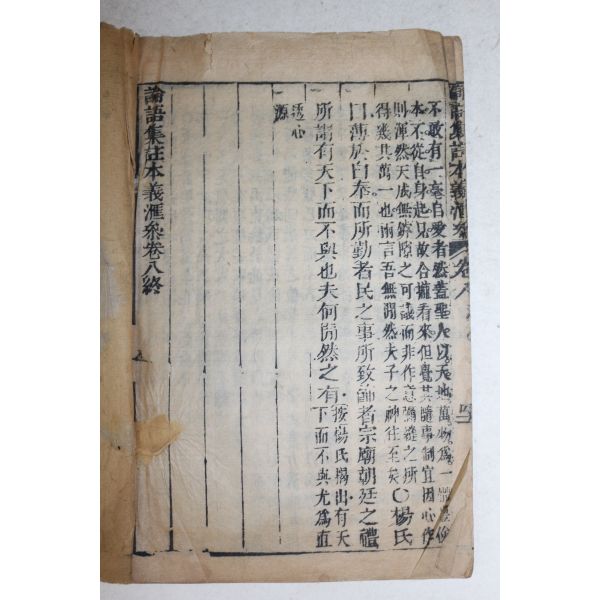 不敢有一毫自愛者然蓋聖人以天地萬物為一
本不從自身起見故合攏看來但覺其隨事制宜因心作
則渾然天成無罅隙之可議而非作意彌縫之所
得幾其萬一也兩言吾無間然夫子之神往至矣○楊氏
曰薄於自奉而所勤者民之事所致飾者宗廟朝廷之禮
所謂有天下而不與也夫何間然之有
按楊氏揭出有天
下而不與尤為直
透心
源
論語集註本義滙叅卷八終